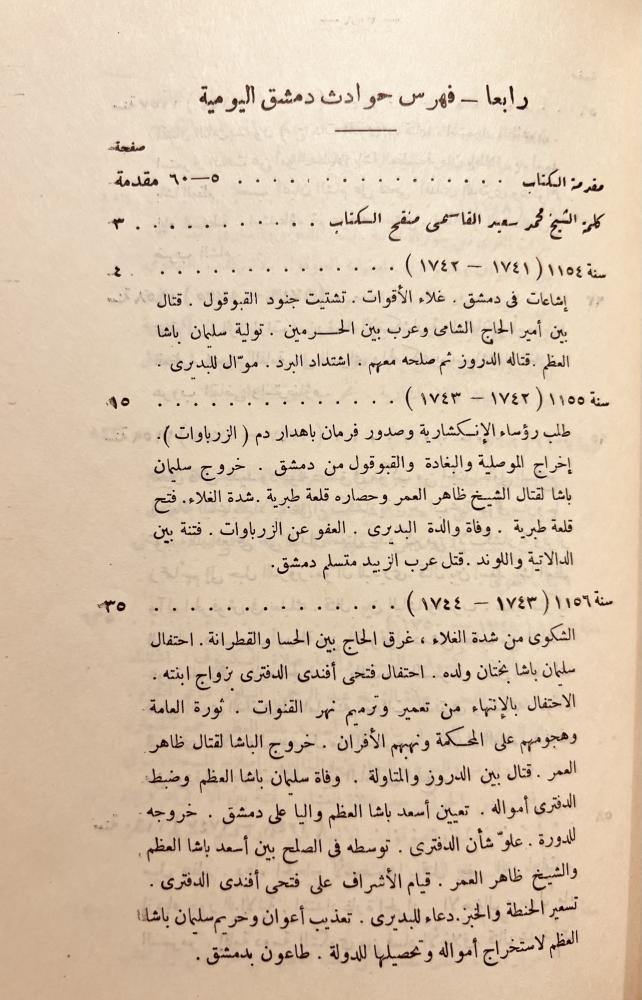 رابعا – فهرس حوادث دمشق اليومية
صفحة
مقدمة الكتاب . . . . . . . . . . . . . . ٥—٦٠ مقدمة
كلمة الشيخ محمد سعيد القاسمى منقح الكتاب . . . . . . . . . ٣
سنة ١١٥٤ ( ١٧٤١ – ١٧٤٢ ) . . . . . . . . . . . . . ٤
إشاعات فى دمشق . غلاء الأقوات . تشتيت جنود القبوقول . قتال
بين أمير الحاج الشامى وعرب بين الحرمين . تولية سليمان باشا
العظم . قتاله الدروز ثم صلحه معهم . اشتداد البرد . موّال للبديرى .
سنة ١١٥٥ ( ١٧٤٢ – ١٧٤٣ ) . . . . . . . . . . . . . ١٥
طلب رؤساء الإنكشارية وصدور فرمان باهدار دم ( الزرباوات ) .
إخراج الموصلية والبغادة والقبوقول من دمشق . خروج سليمان
باشا لقتال الشيخ ظاهر العمر وحصاره قلعة طبرية . شدة الغلاء . فتح
قلعة طبرية . وفاة والدة البديرى . العفو عن الزرباوات . فتنة بين
الدالاتية واللوند . قتل عرب الزبيد متسلم دمشق .
سنة ١١٥٦ ( ١٧٤٣ – ١٧٤٤ ) . . . . . . . . . . . . . ٣٥
الشكوى من شدة الغلاء ، غرق الحاج بين الحسا والقطرانة . احتفال
سليمان باشا بختان ولده . احتفال فتحى أفندى الدفترى بزواج ابنته .
الاحتفال بالإنتهاء من تعمير وترميم نهر القنوات . ثورة العامة
وهجومهم على المحكمة ونهبهم الأفران . خروج الباشا لقتال ظاهر
العمر . قتال بين الدروز والمتاولة . وفاة سليمان باشا العظم وضبط
الدفترى أمواله . تعيين أسعد باشا العظم واليا على دمشق . خروجه
للدورة . علوّ شأن الدفترى . توسطه فى الصلح بين أسعد باشا العظم
والشيخ ظاهر العمر . قيام الأشراف على فتحى أفندى الدفترى .
تسعير الحنطة والخبز . دعاء للبديرى . تعذيب أعوان وحريم سليمان باشا
العظم لاستخراج أمواله وتحصيلها للدولة . طاعون بدمشق .